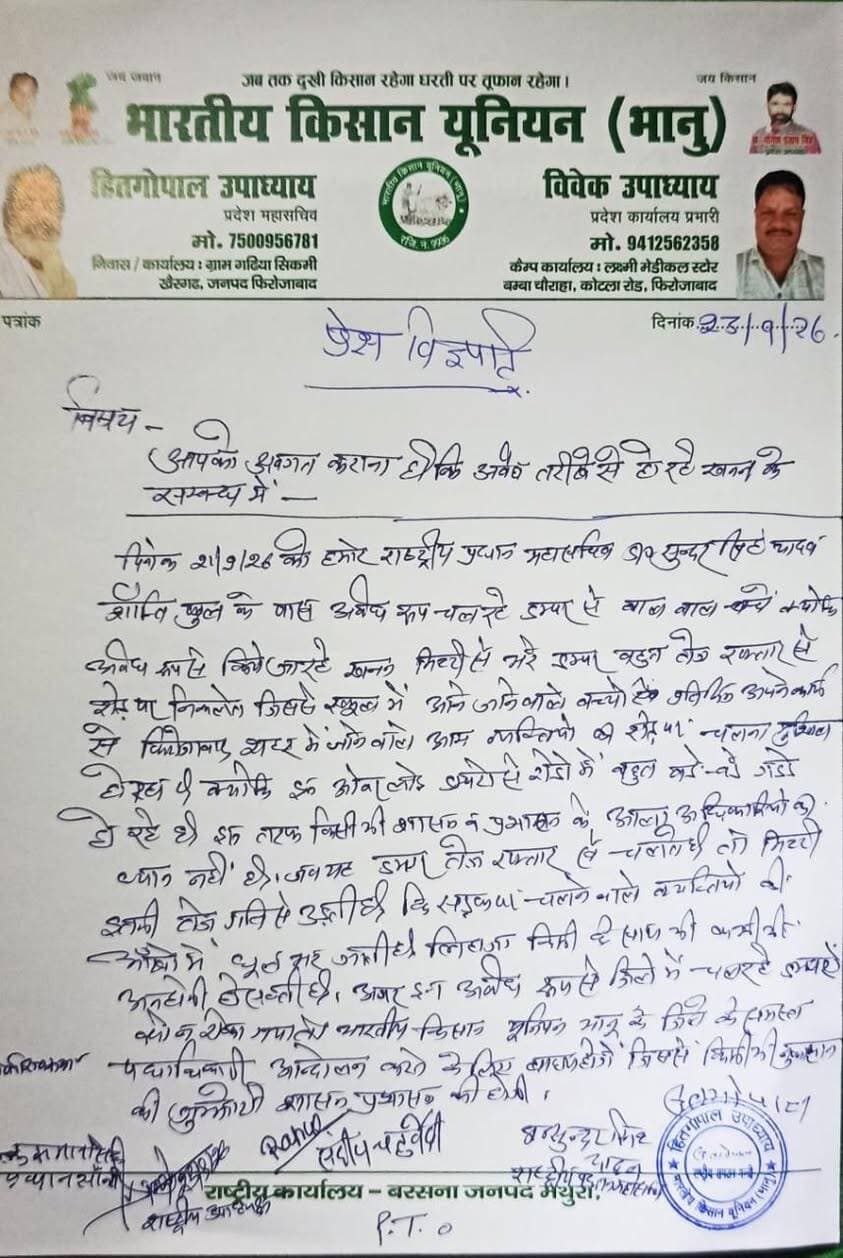 जय जवान
जब तक दुखी किसान रहेगा धरती पर तूफान रहेगा।
जय किसान
भारतीय किसान यूनियन (भानु)
हितगोपाल उपाध्याय
प्रदेश महासचिव
मो. 7500956781
निवास / कार्यालय : ग्राम गढिया सिकमी
खैरगढ, जनपद फिरोजाबाद
विवेक उपाध्याय
प्रदेश कार्यालय प्रभारी
मो. 9412562358
कैम्प कार्यालय : लक्ष्मी मेडीकल स्टोर
बम्बा चौराहा, कोटला रोड, फिरोजाबाद
पत्रांक
दिनांक
प्रेस विज्ञप्ति
विषय -
आपको अवगत कराना है कि अवैध तरीके से हो रहे खनन के
सम्बन्ध में -
को हमारे राष्ट्रीय प्रधान महासचिव सुन्दर सिंह यादव
शांति स्कूल के पास अवैध रूप चल रहे डम्पर से बाल बाल बचे क्योंकि
अवैध रूप से किये जा रहे खनन मिट्टी से भरे डम्पर बहुत तेज रफ्तार से
रोड पर निकलते जिससे स्कूल में आने जाने वाले बच्चों
से शहर में जाने वाले आम व्यक्तियों को रोड पर चलना
हो रहा है क्योंकि इन ओवर लोड डम्परों से रोडो में बहुत बडे-बडे गडडे
हो रहे है। इस तरफ किसी भी शासन व प्रशासन के आला अधिकारियों की
ध्यान नहीं है। जब यह डम्पर तेज रफ्तार से चलते है तो मिट्टी
इतनी तेज गति से उड़ती है कि सड़क पर चलने वाले व्यक्तियों की
आँखों में धूल भर जाती है। लिहाजा किसी के साथ भी कभी भी
अनहोनी हो सकती है। अगर इन अवैध रूप से जिले में चल रहे डम्परों
को न रोका गया तो भारतीय किसान यूनियन भानु के जिले के समस्त
पदाधिकारी आन्दोलन करने के लिए बाध्य होगें जिससे किसी भी नुकसान
की जुम्मेदारी शासन प्रशासन की होगी।
Rahul
संदीप चतुर्वेदी
सुन्दर सिंह
यादव
हितगोपाल उपाध्याय
भारतीय किसान यूनियन (भानु)
राष्ट्रीय कार्यालय - बरसना जनपद मथुरा,
P.T.O